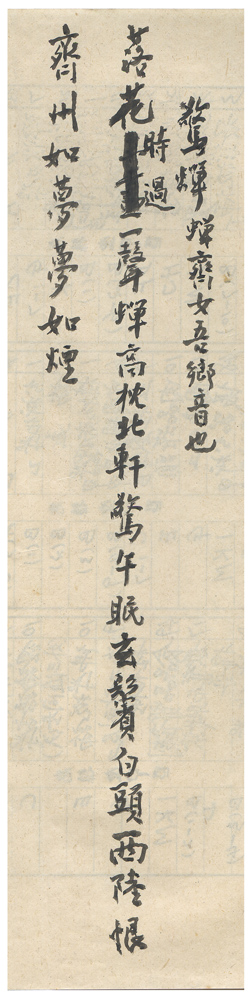 驚蟬 蟬齊女吾鄉音也
落花時過一聲蟬高枕北軒驚午眠玄鬢白頭西陸恨
齊州如夢夢如煙